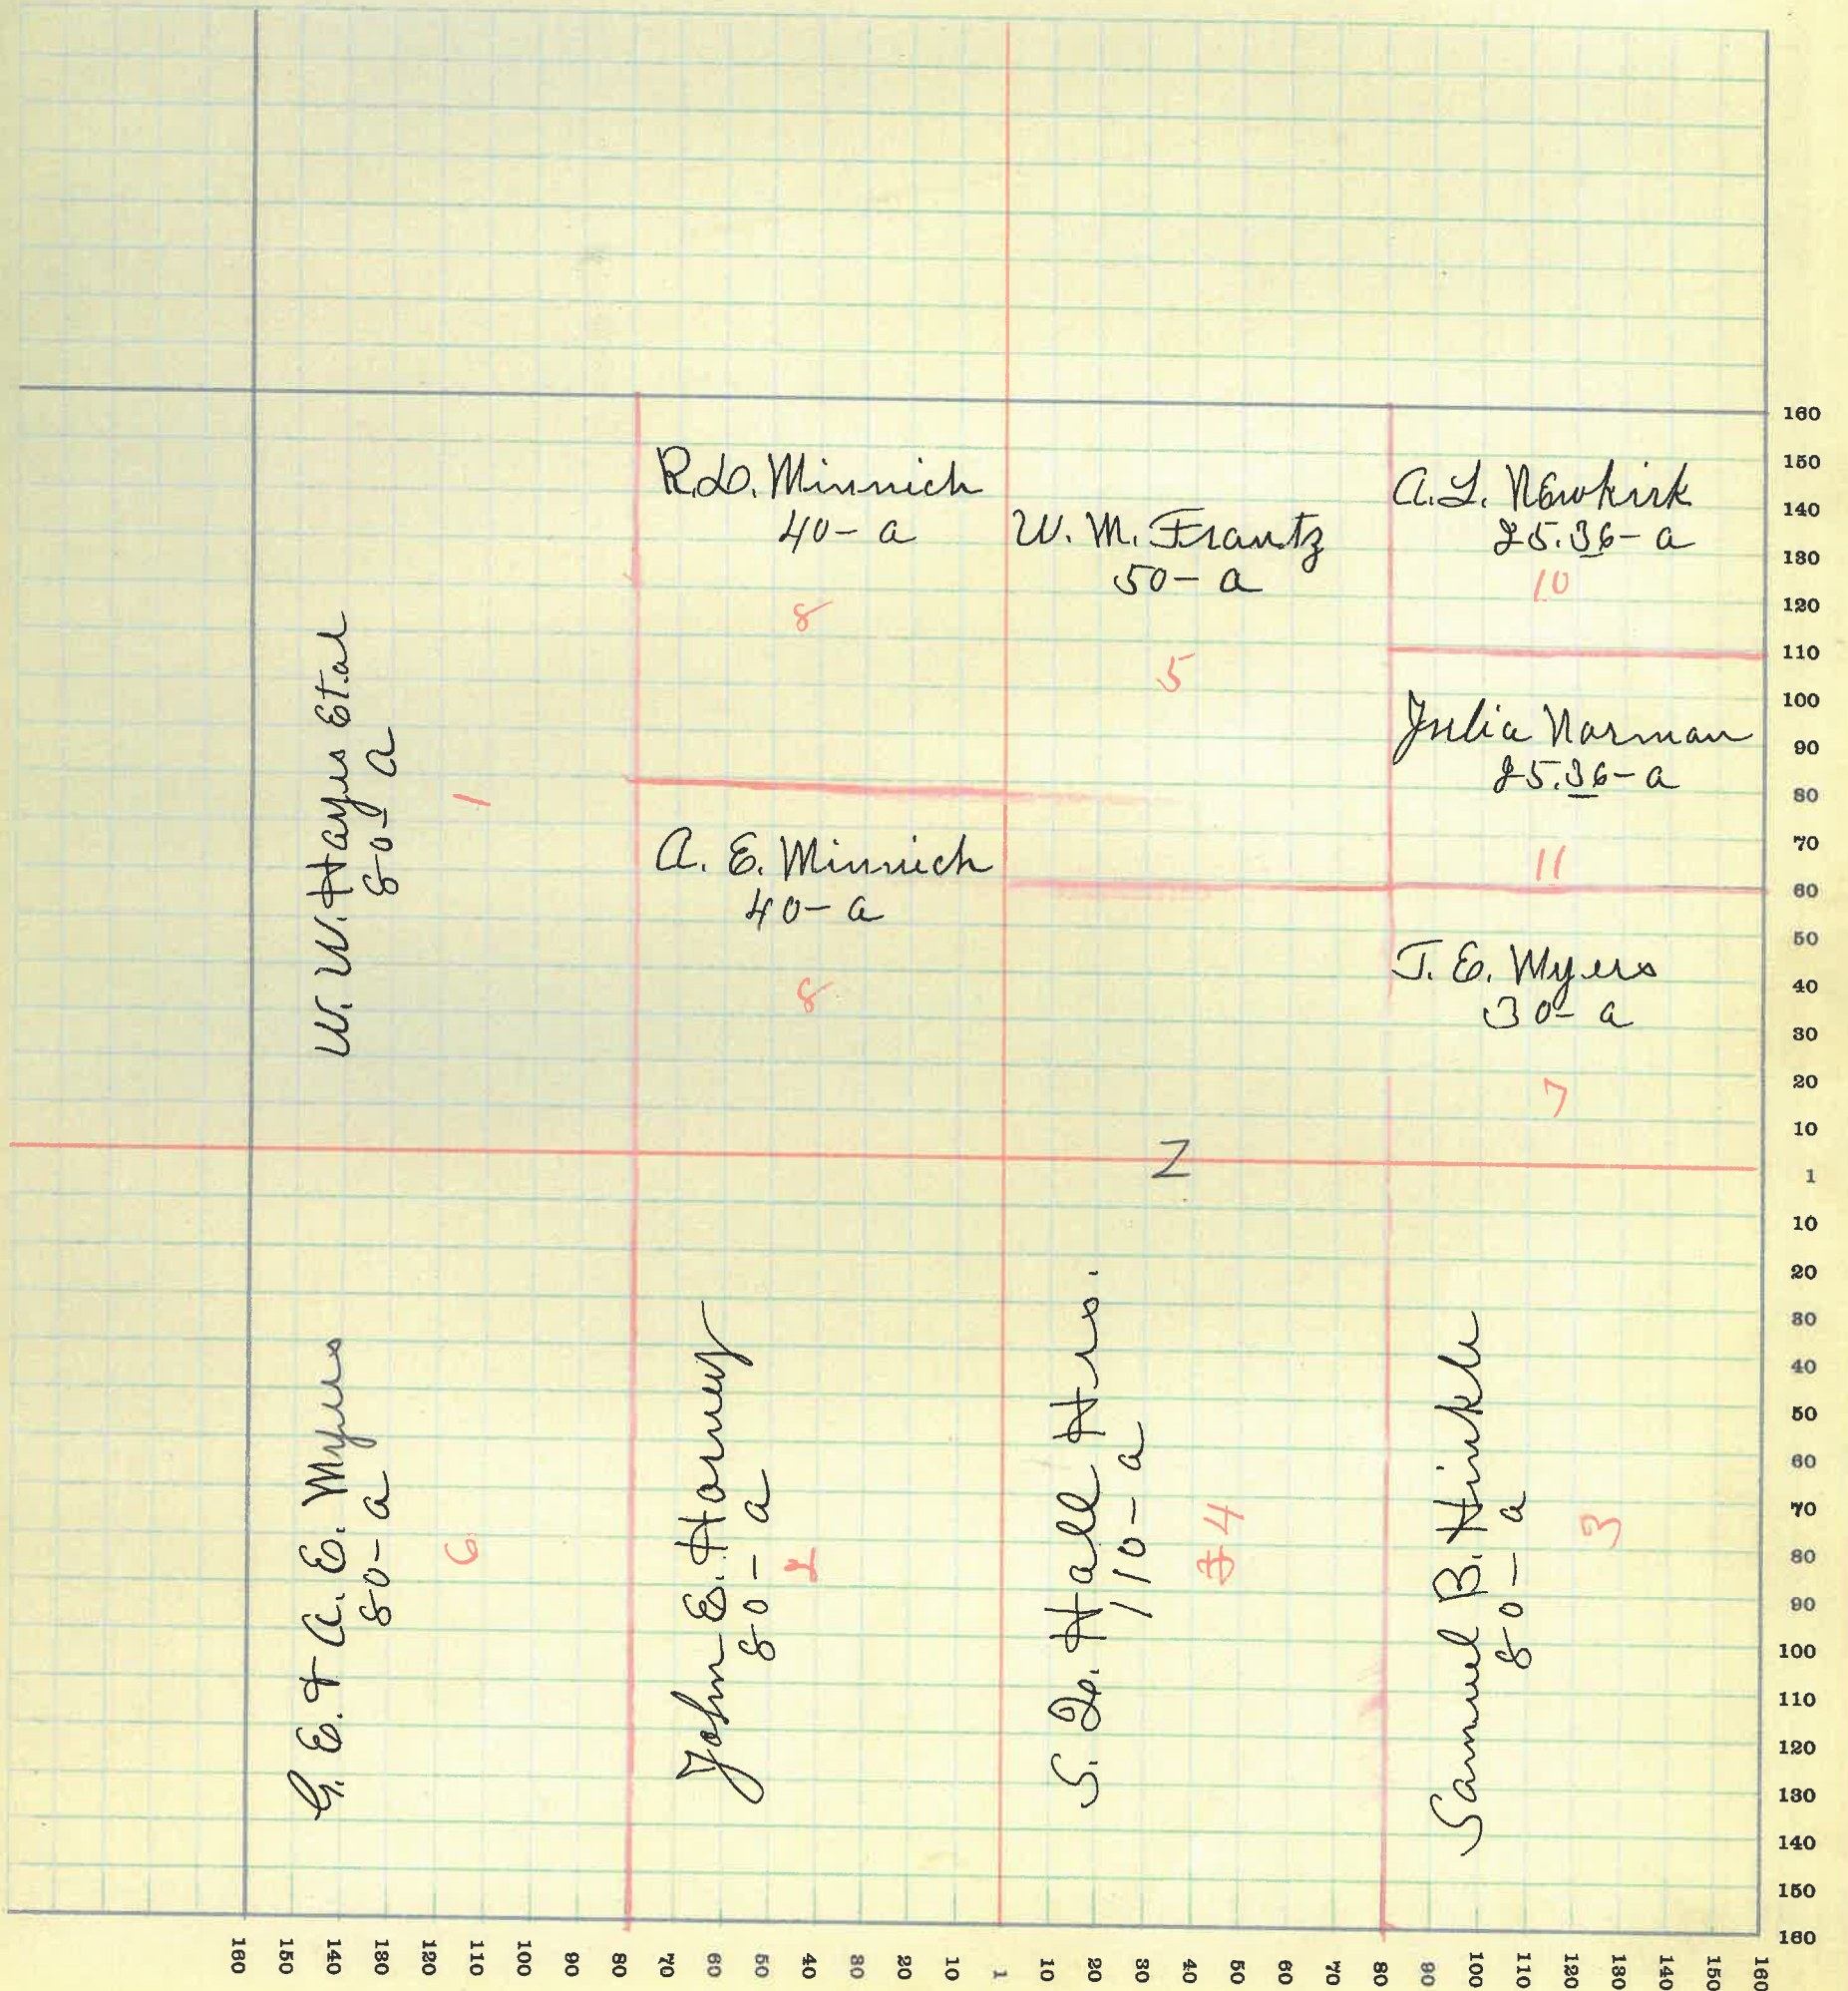 R.D. Minnich
40- a
8
W. M. Frantz
50- a
5
A.L. Newkirk
25.36- a
10
Julia Norman
25.36- a
11
W. W. Hayes Et.al
80- a
1
A. E. Minnich
40- a
8
J. E. Myers
30- a
7
Z
G. E. & A. E. Myers
80- a
6
John E. Harney
80- a
2
Hall Hrs.
110- a
4
Samuel B. Hinkle
80- a
3
160
150
140
130
120
110
100
90
80
70
60
50
40
30
20
10
1
10
20
30
40
50
60
70
80
90
100
110
120
130
140
150
160
160 150 140 130 120 110 100 90 80 70 60 50 40 30 20 10 1 10 20 30 40 50 60 70 80 90 100 110 120 130 140 150 160